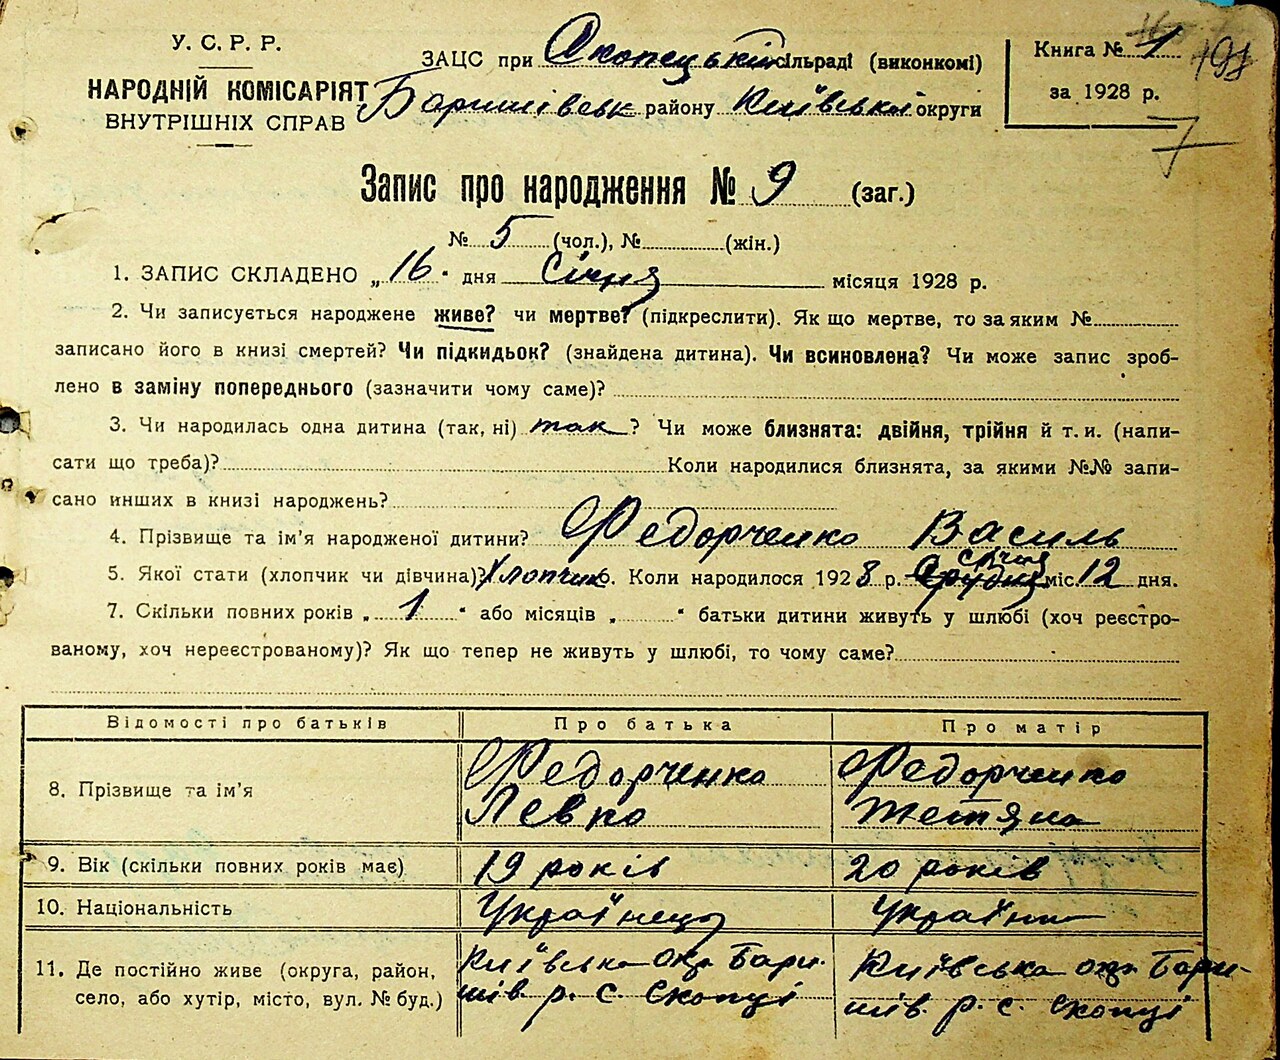 У. С. Р. Р.
НАРОДНІЙ КОМІСАРІЯТ
ВНУТРІШНІХ СПРАВ
ЗАЦС при Скопецькій сільраді (виконкомі)
Баришівськ району Київської округи
Книга № 1
за 1928 р.
191
7
Запис про народження № 9 (заг.)
№ 5 (чол.), № (жін.)
1. ЗАПИС СКЛАДЕНО „16" дня Січня місяця 1928 р.
2. Чи записується народжене живе? чи мертве? (підкреслити). Як що мертве, то за яким №
записано його в книзі смертей? Чи підкидьок? (знайдена дитина). Чи всиновлена? Чи може запис зроб-
лено в заміну попереднього (зазначити чому саме)?
3. Чи народилась одна дитина (так, ні) так? Чи може близнята: двійня, трійня й т. и. (напи-
сати що треба)? Коли народилися близнята, за якими №№ запи-
сано инших в книзі народжень?
4. Прізвище та ім'я народженої дитини? Федорченко Василь
5. Якої стати (хлопчик чи дівчина)? Хлопчик. Коли народилося 1928 р. Грудня січня міс. 12 дня.
7. Скільки повних років „1" або місяців „ " батьки дитини живуть у шлюбі (хоч реєстро-
ваному, хоч нереєстрованому)? Як що тепер не живуть у шлюбі, то чому саме?
Відомості про батьків Про батька Про матір
8. Прізвище та ім'я Федорченко Левко Федорченко Тетяна
9. Вік (скільки повних років має) 19 років 20 років
10. Національність Українець Україн
11. Де постійно живе (округа, район, Київська окр Бари- Київська окр Бари-
село, або хутір, місто, вул. № буд.) шів. р. с. Скопці шів. р. с. Скопці